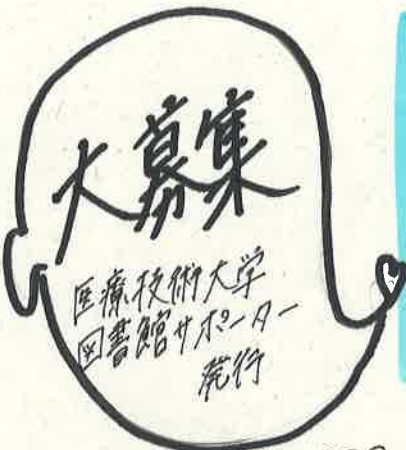 大募集
医療技術大学
図書館サポーター
発行